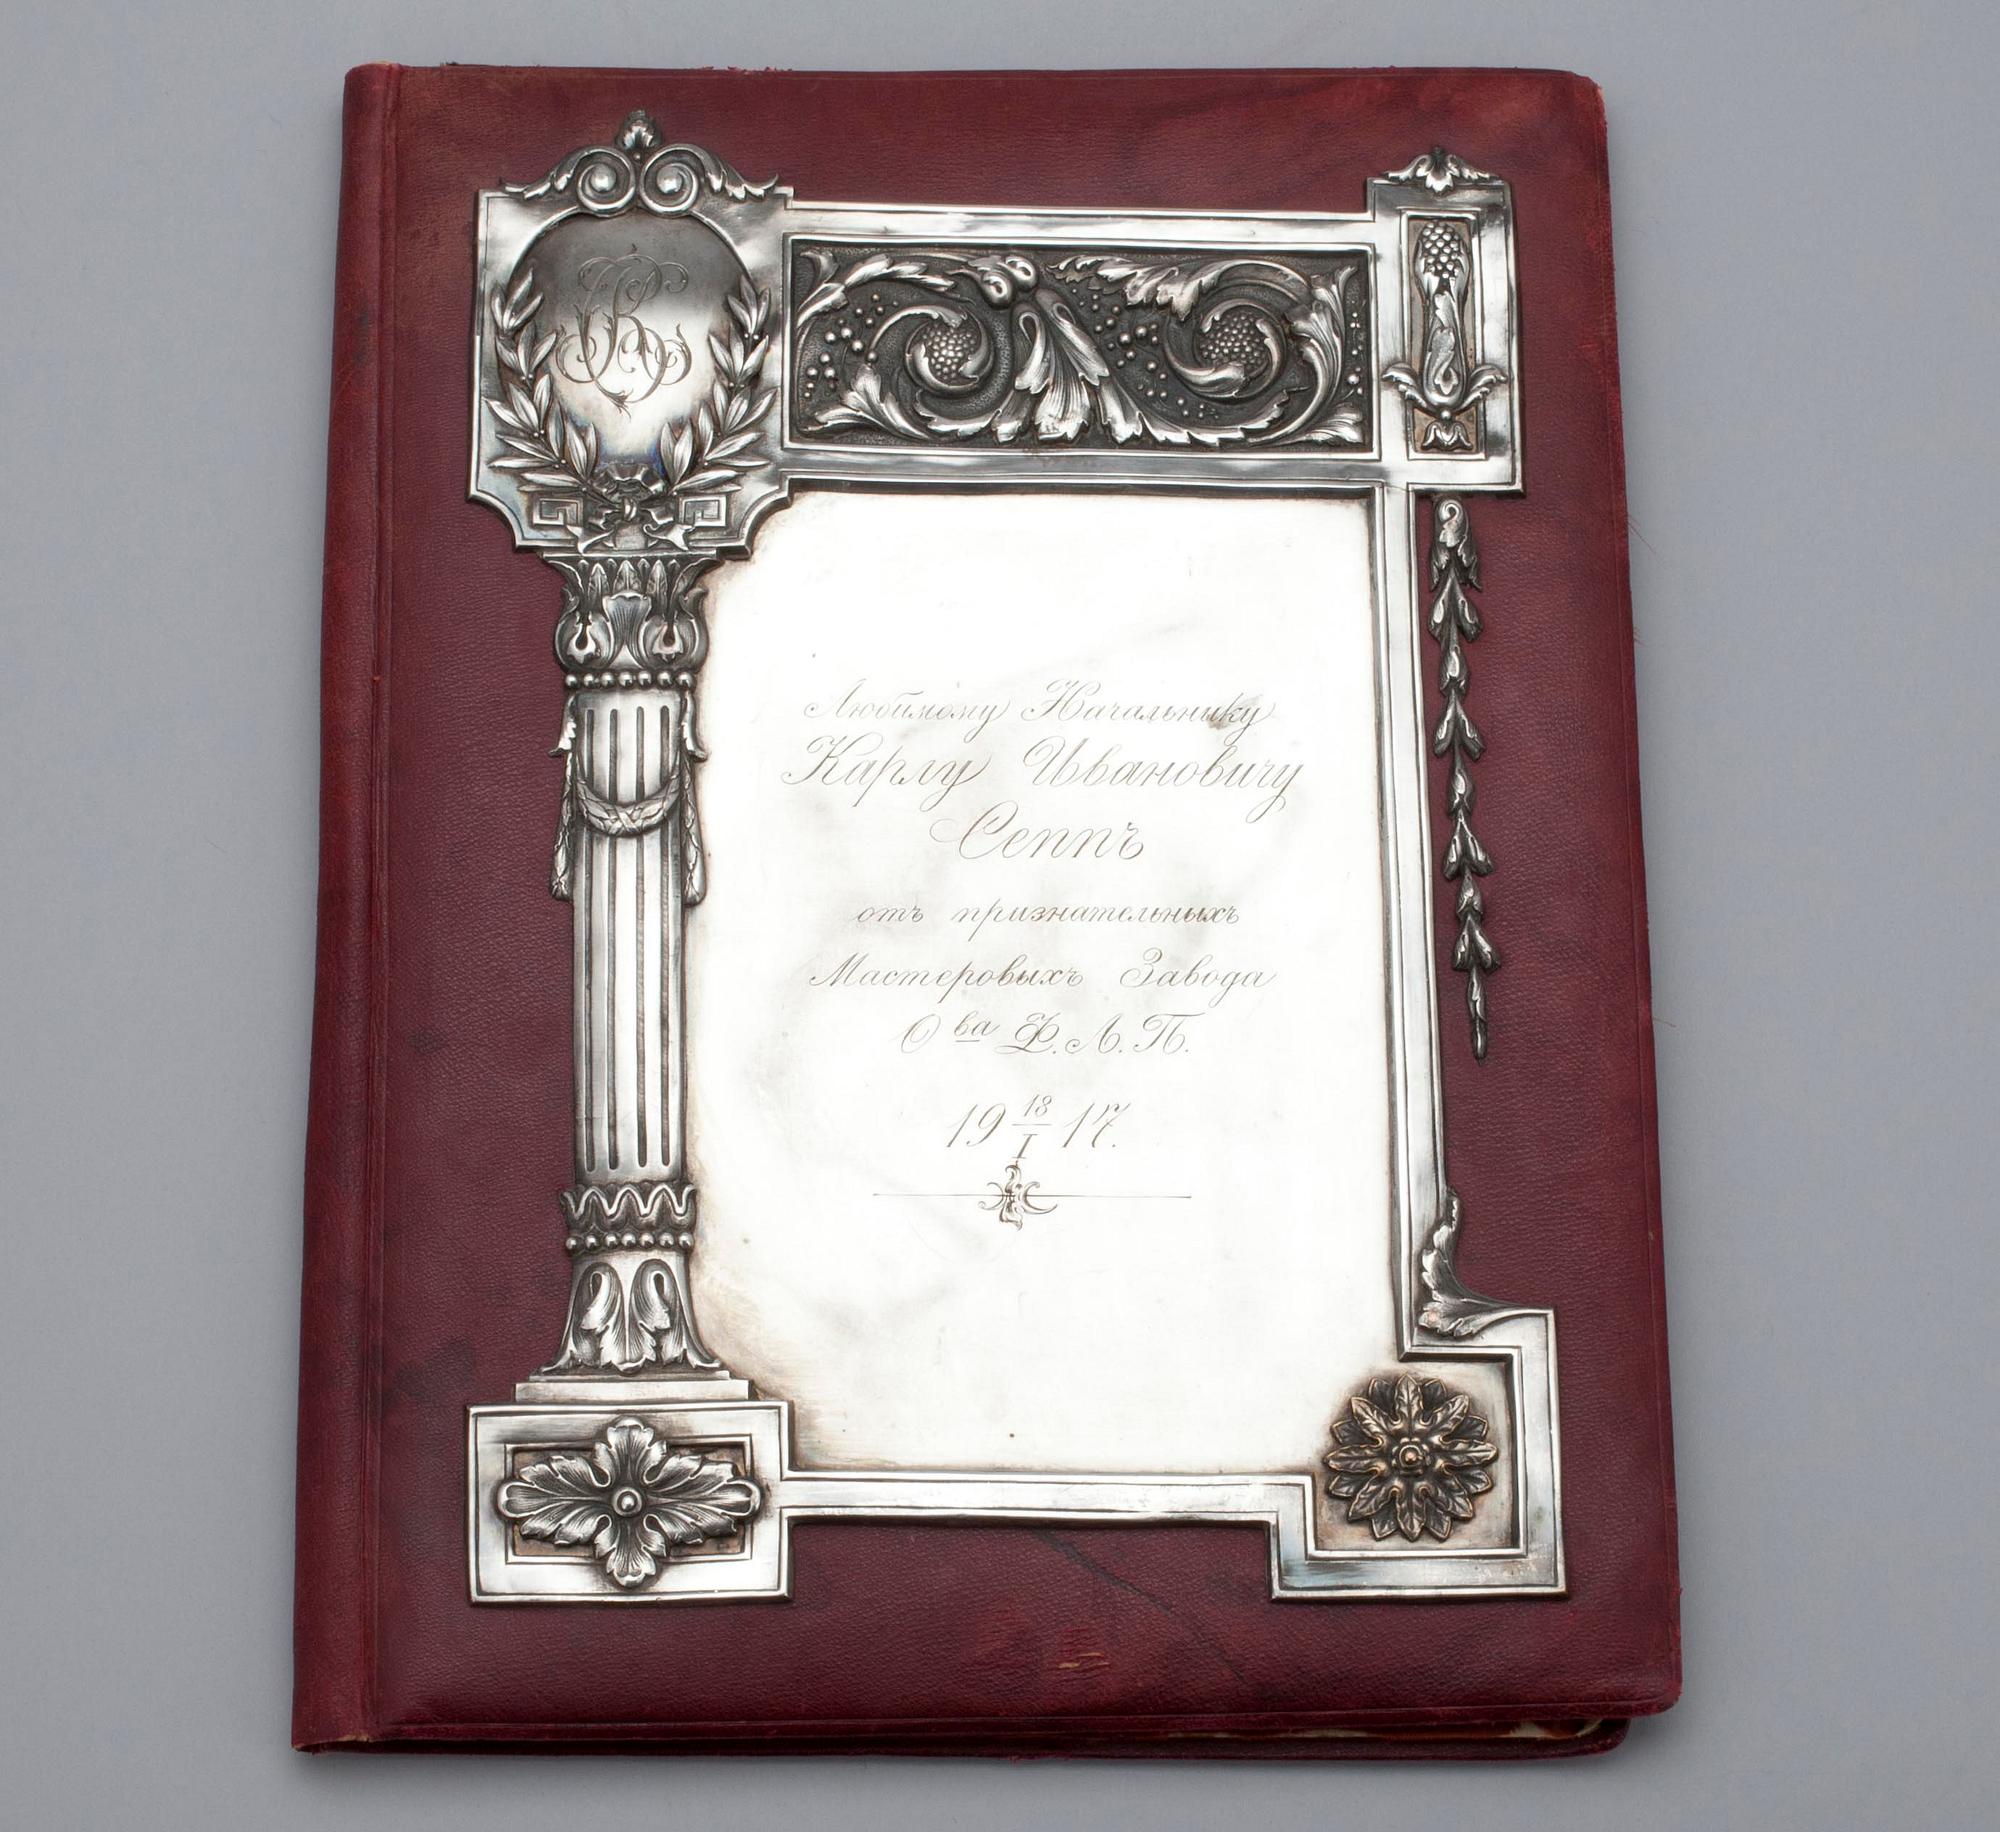 Любимому Начальнику
Карлу Ивановичу
Сеппъ
отъ признательныхъ
Мастеровыхъ Завода
О ва Ф. Л. П.
19 18/I 17.